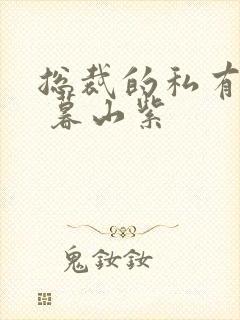 总裁的私有
暮山紫
鬼钕钕